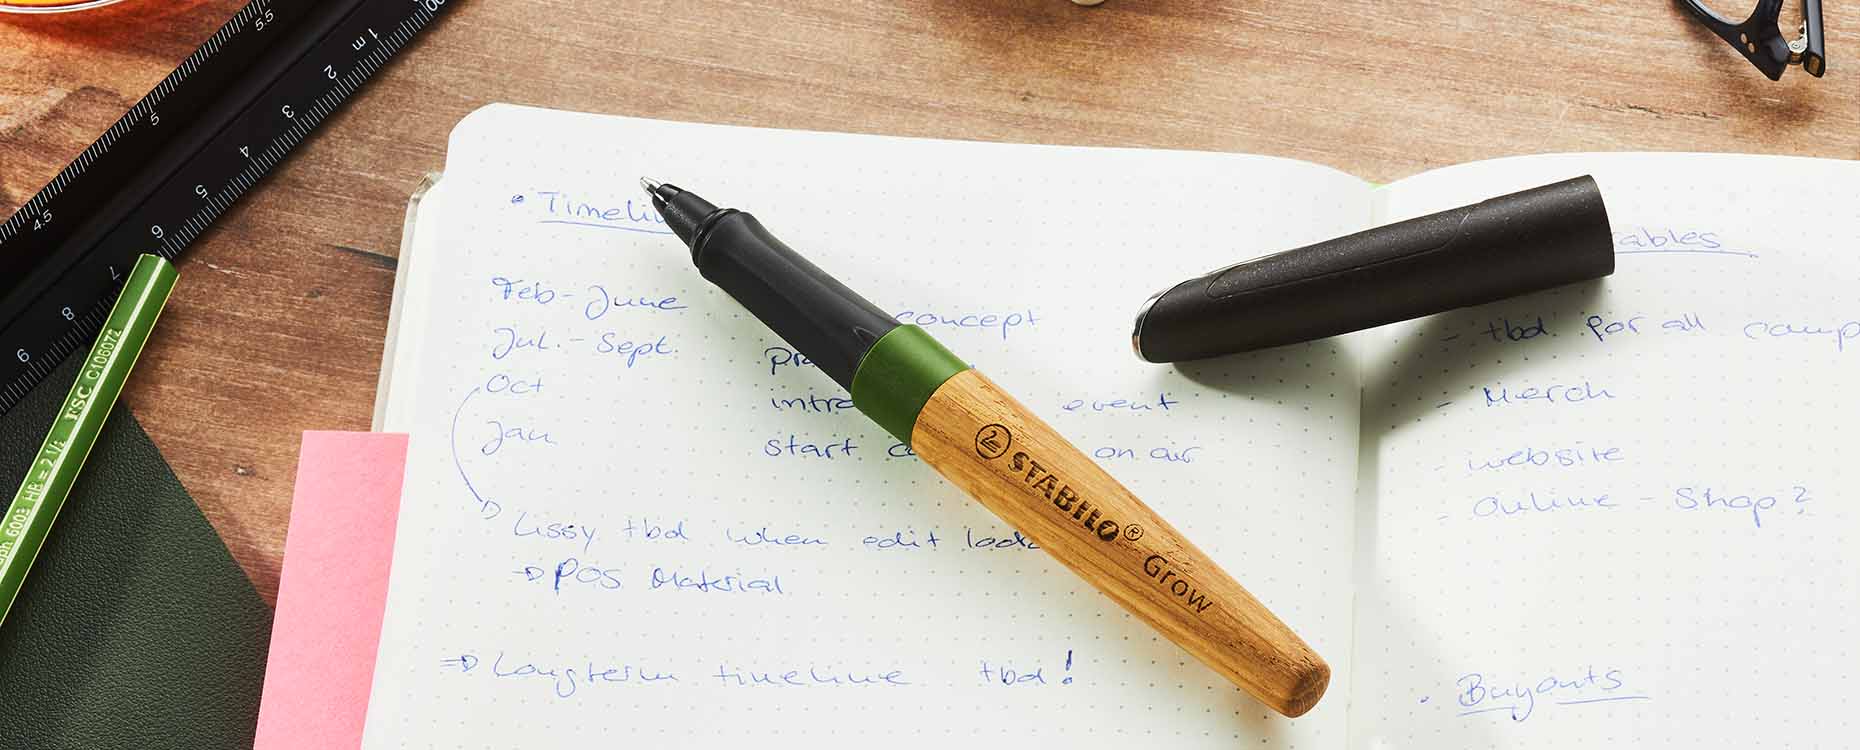 5.5
5
4.5
00
1 m
2
3
4
5
6
7
8
9
ph 6003 HB = 2 1/2 FSC C106072
• Timeli
Feb - June
concept
Jul. - Sept.
Oct
intro
event
Jan
start
on air
Lissy tbd when edit
→ POS Material
⇒ Longterm timeline tbd!
STABILO® Grow
ables
- tbd for all comp
- Merch
- website
- Online - Shop?
• Buyouts